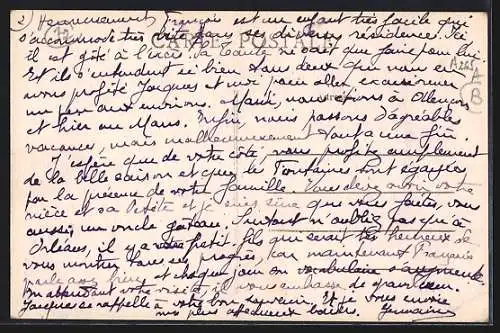 2) Heureusement François est un enfant très facile qui
s'accommode très vite dans ses diverses résidences. Ici
CARTE POSTALE
il est gâté à l'excès. Sa Tante ne sait que faire pour lui
Et ils s'entendent si bien tous deux que nous en
avons profité Jacques et moi pour aller excursionner
un peu aux environs. Mardi, nous étions à Alençon
et hier au Mans. Enfin, nous passons d'agréables
vacances, mais malheureusement tout a une fin.
J'espère que de votre côté, vous profitez amplement
de la belle saison et que les Fontaines sont égayées
par la présence de votre famille. Vous devez avoir votre
nièce et sa petite et je suis sûre que vous faites, vous
aussi, un oncle gâteau. Surtout n'oubliez pas qu'à
Orléans, il y a votre petit fils qui serait très heureux de
vous montrer tous ses progrès, car maintenant François
parle assez bien et chaque jour son vocabulaire s'augmente.
En attendant votre visite, il vous embrasse de grand cœur.
Jacques se rappelle à votre bon souvenir. Et je vous envoie
mes plus affectueux baisers. Germaine
A265
A
B